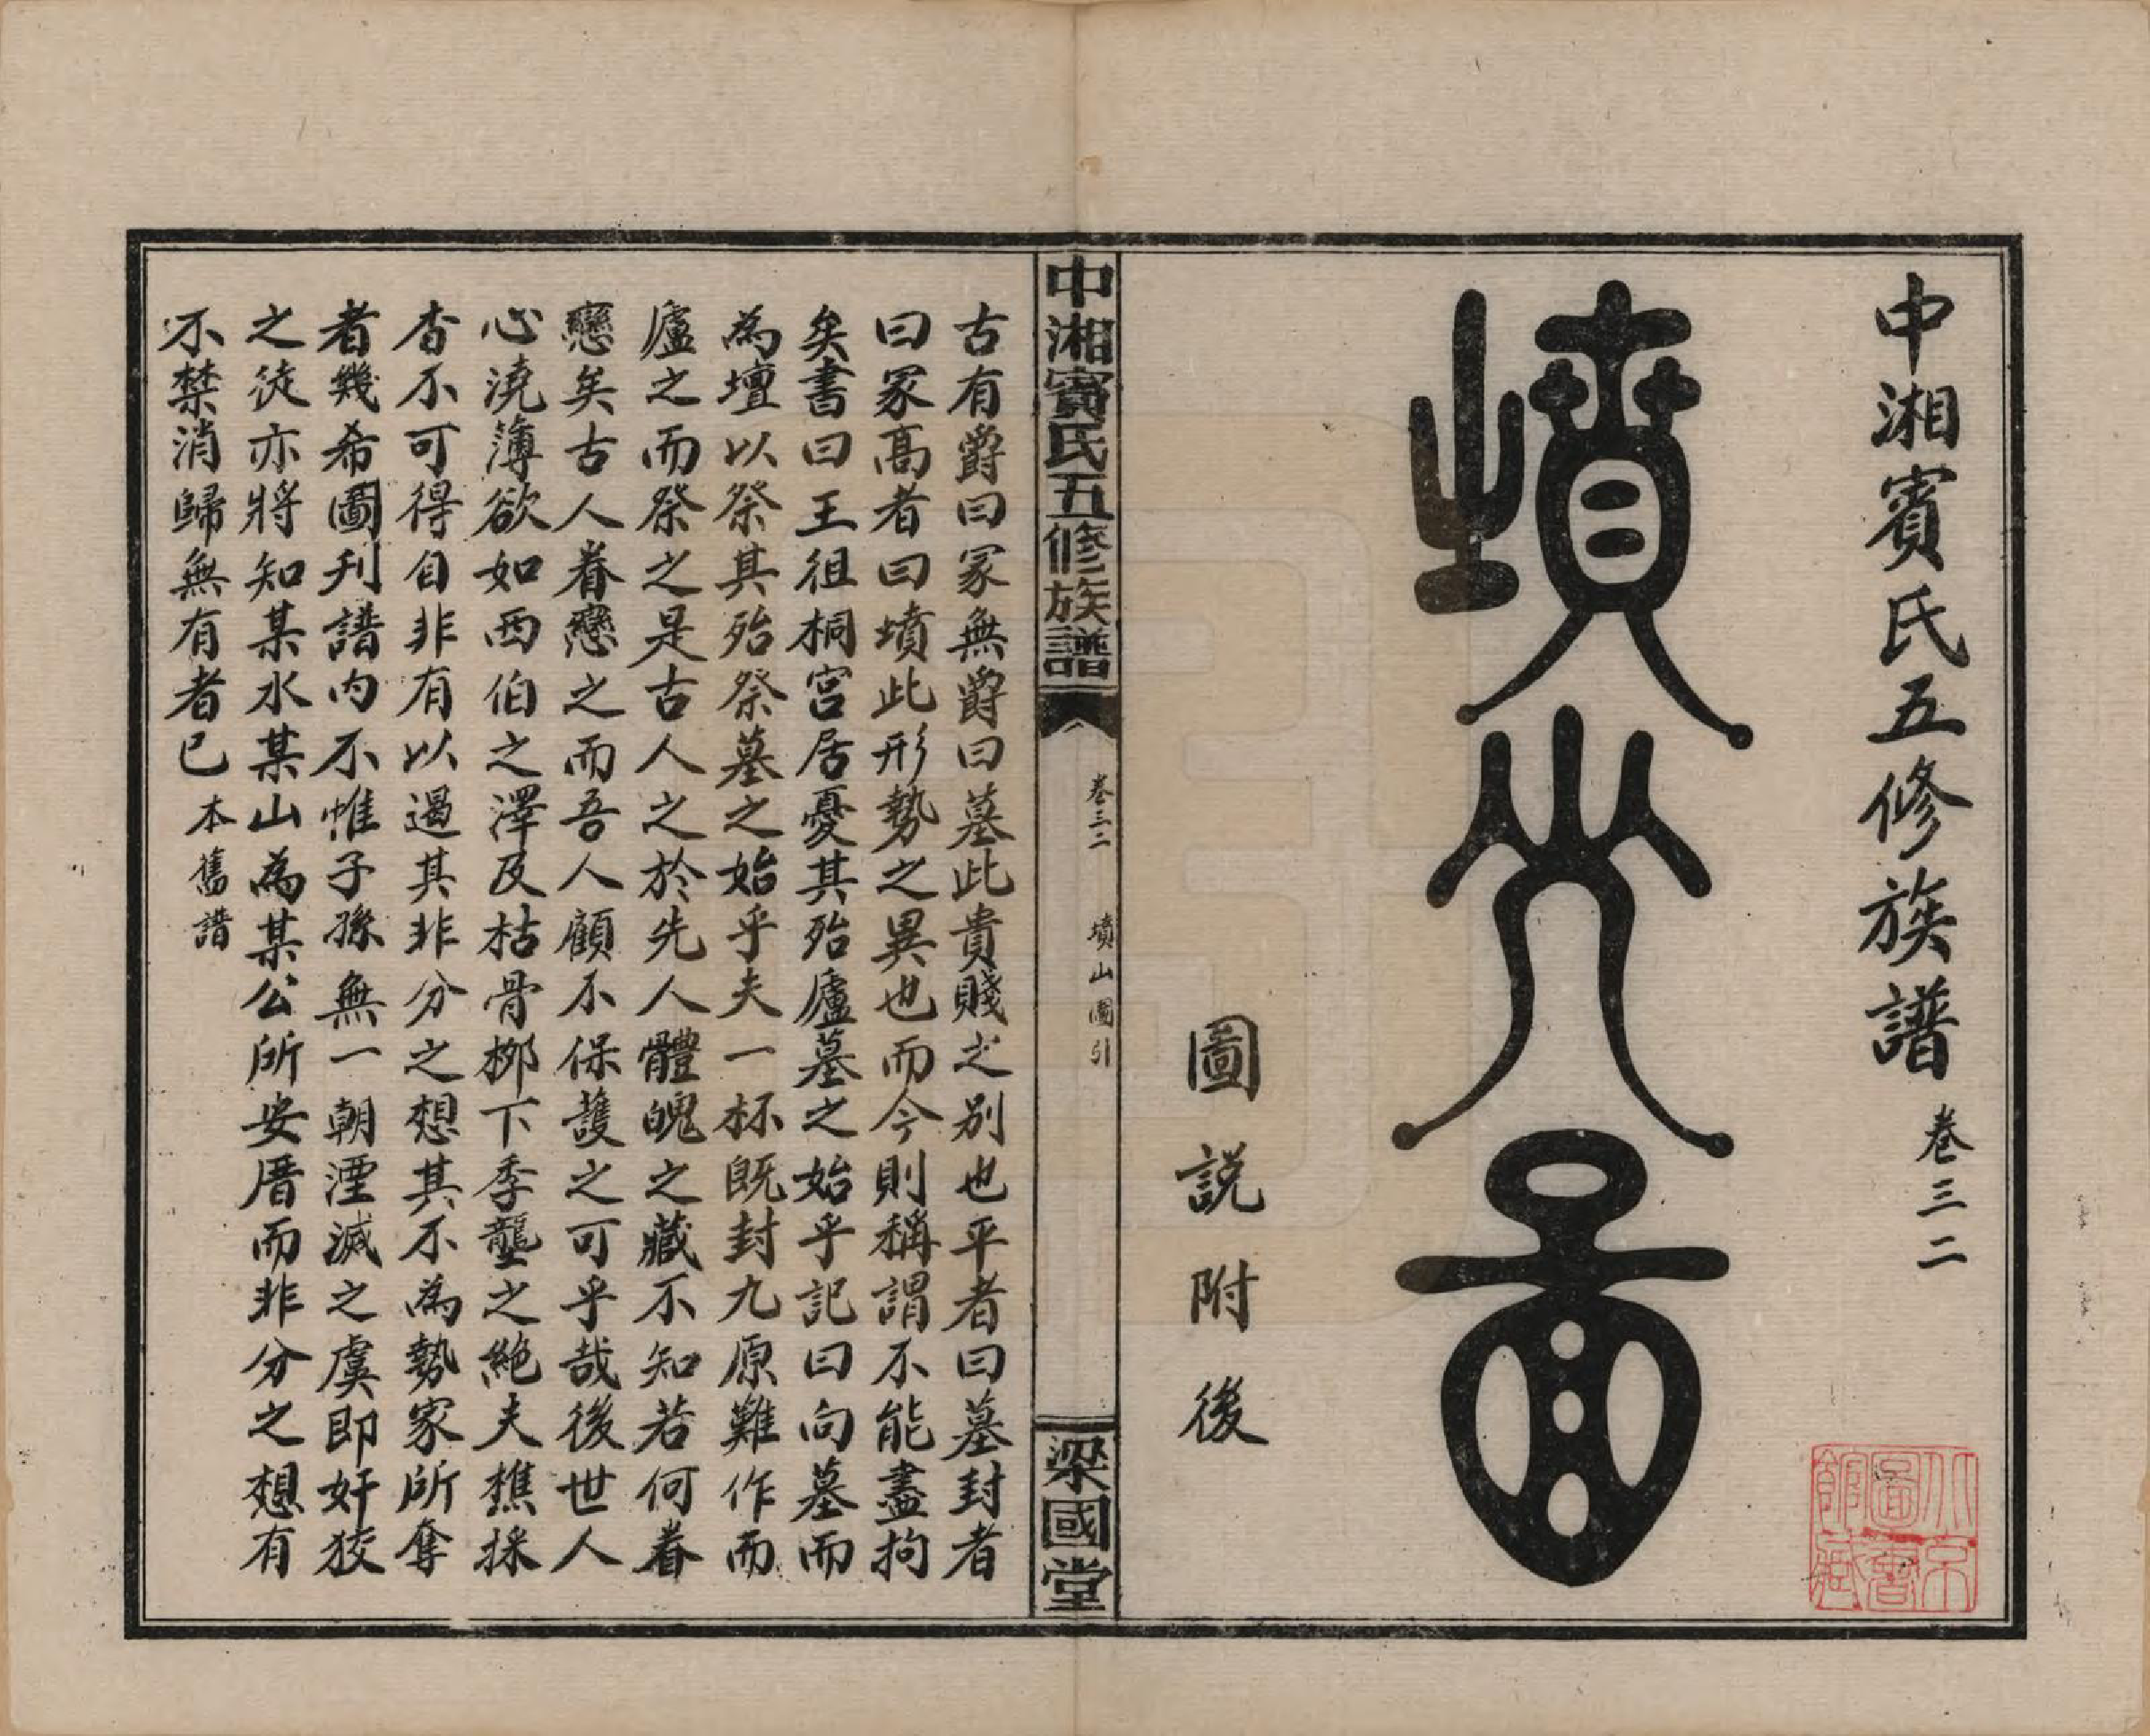 中湘賓氏五修族譜 卷三二
墳山圖
圖説附後
北京圖書館藏
中湘賓氏五修族譜 卷三二 墳山圖引 梁國堂
古有爵曰冢無爵曰墓此貴賤之別也平者曰墓封者
曰冢高者曰墳此形勢之異也而今則稱謂不能盡拘
矣書曰王徂桐宮居憂其殆廬墓之始乎記曰向墓而
為壇以祭其殆祭墓之始乎夫一杯既封九原難作而
廬之而祭之是古人之於先人體魄之藏不知若何眷
戀矣古人眷戀之而吾人顧不保護之可乎哉後世人
心澆薄欲如西伯之澤及枯骨栁下季壟之絶夫樵採
杳不可得自非有以遏其非分之想其不為勢家所奪
者幾希圖刋譜内不惟子孫無一朝湮滅之虞即奸狡
之徒亦將知某水某山為某公所安厝而非分之想有
不禁消歸無有者已 本舊譜